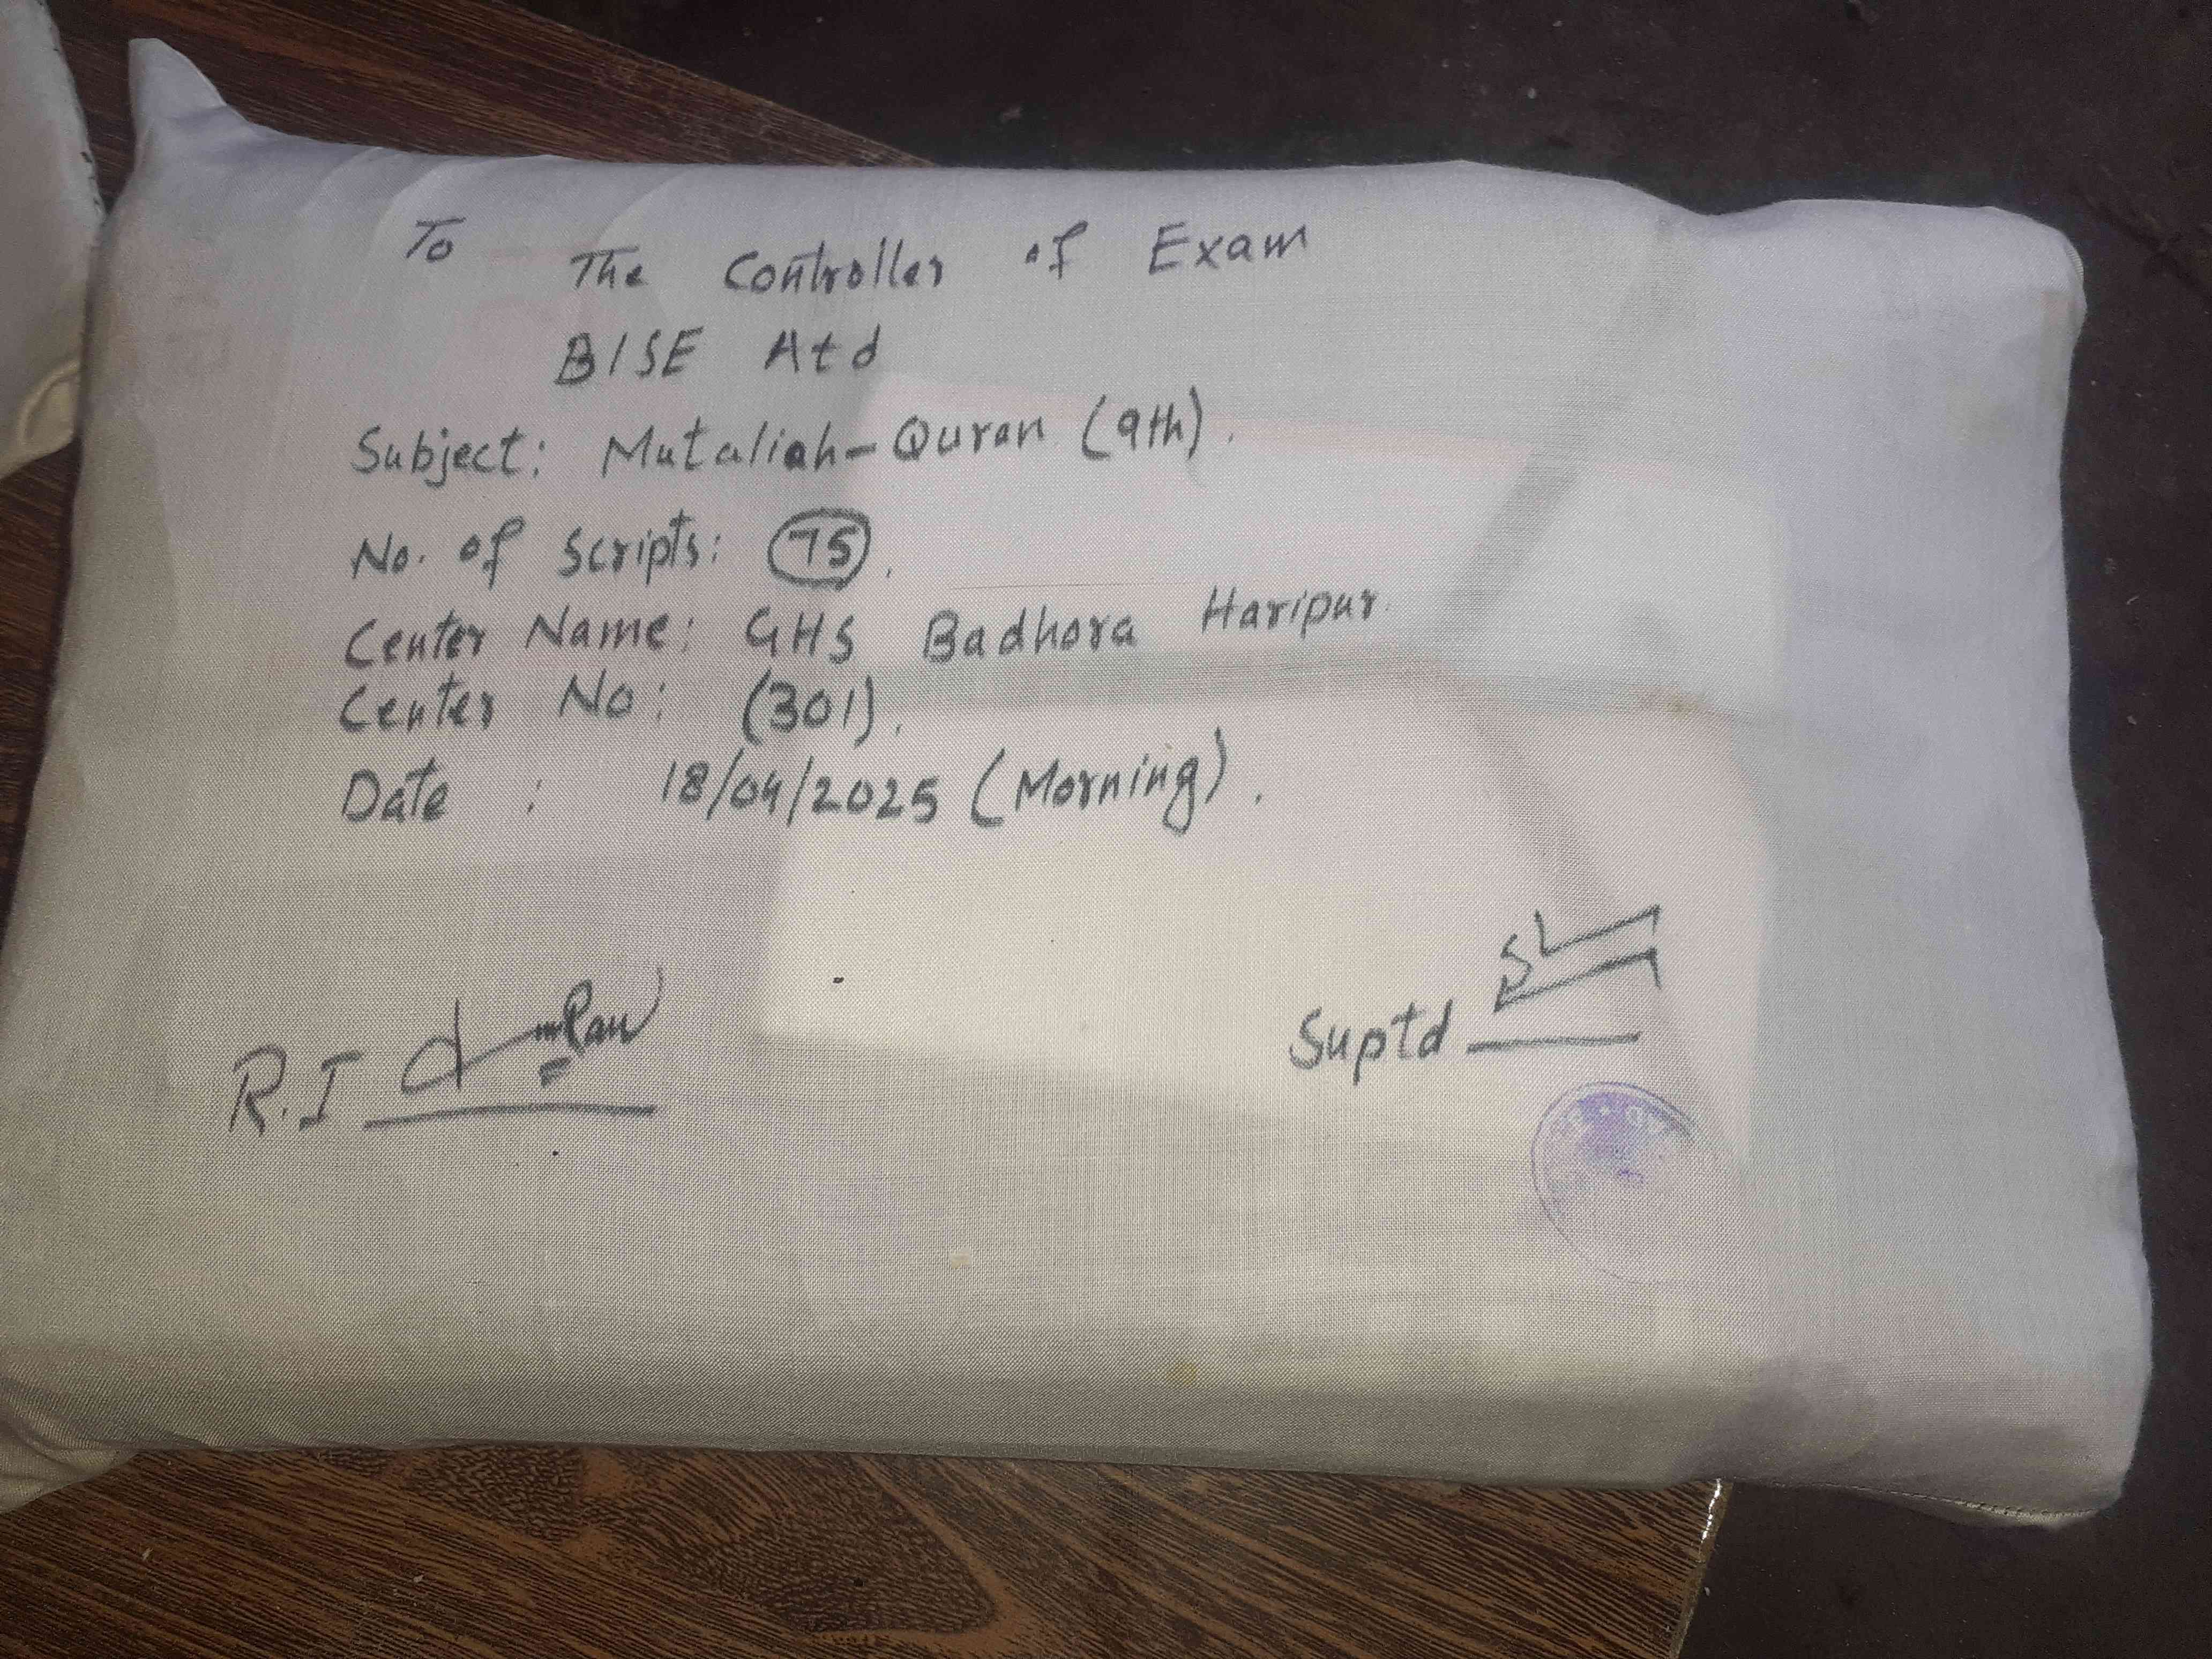 To
The Controller of Exam
BISE Atd
Subject: Mutaliah-Quran (9th).
No. of Scripts: 75.
Center Name: GHS Badhora Haripur.
Center No: (301).
Date : 18/04/2025 (Morning).
R.I
Suptd